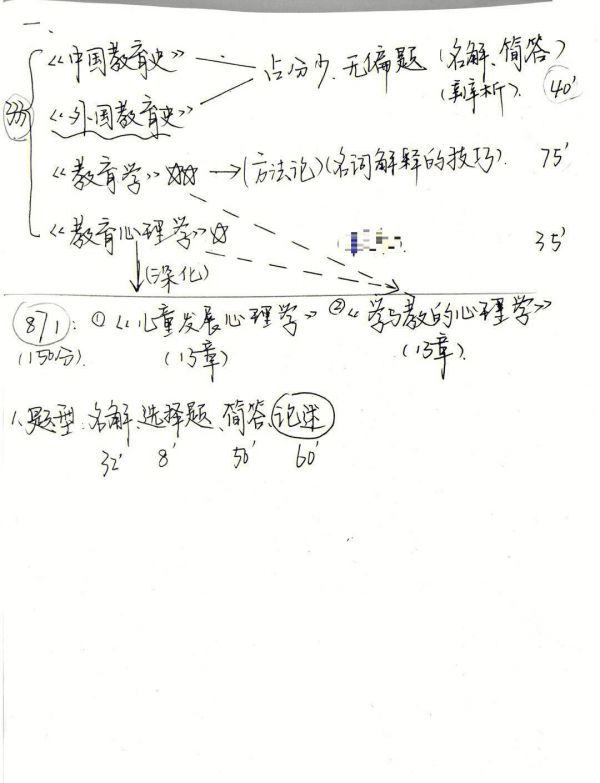 一、
333
《中国教育史》 占分少、无偏题 (名解、简答)
《外国教育史》 (辨析). 40'
《教育学》☆☆ → (方法论)(名词解释的技巧). 75'
《教育心理学》☆ 35'
(深化)
871: ①《儿童发展心理学》 ②《学与教的心理学》
(150分). (13章) (13章).
1、题型: 名解、选择题、简答、论述
32' 8' 50' 60'